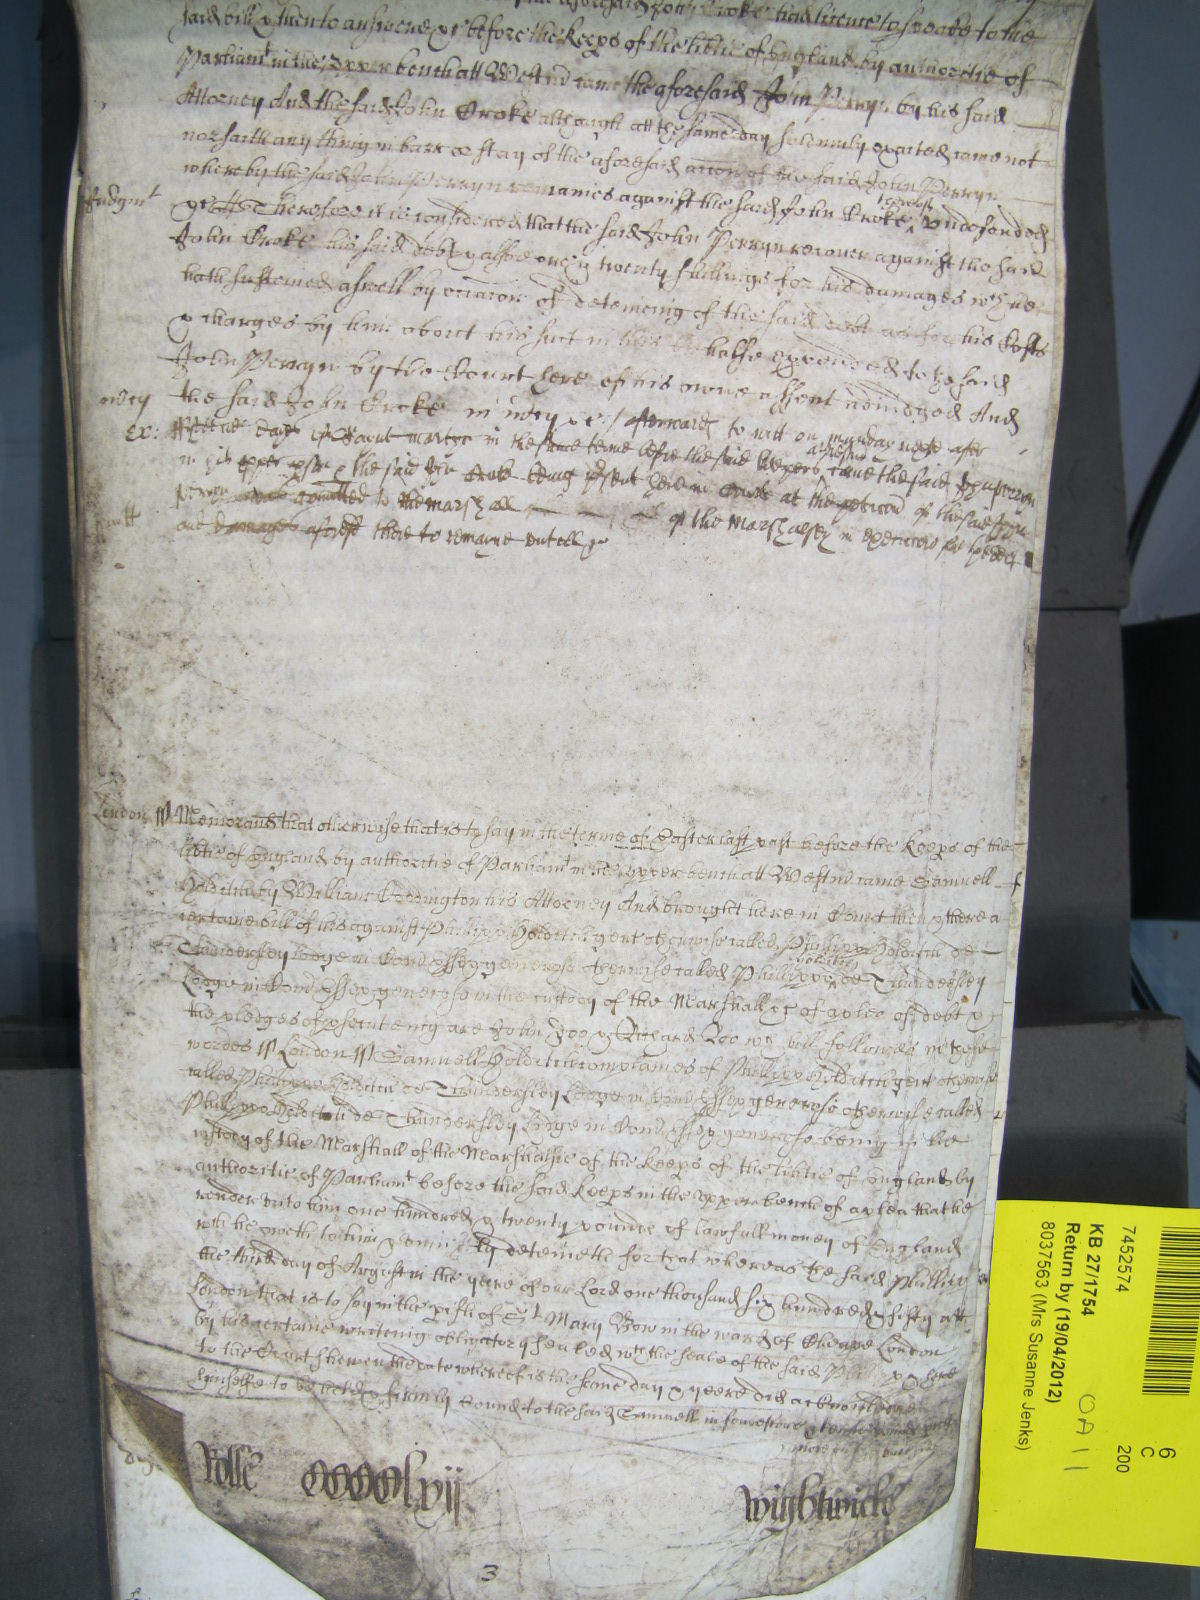 said bill & then to answere &c before the Keeps of the libtie of England by authoritie of
Parliamt in the upper bench att Westmr came the aforesaid John Perryn by his said
Attorney And the said John Croke although att the same day solemnly exacted came not
nor saith any thing in barr or stay of the aforesaid accon of the said John Perryn
whereby the said John Perryn remaines against the said John Croke therein undefended
Judgmt &c Therefore it is considered that the said John Perryn recover against the said
John Croke his said debt & alsoe & twenty shillings for his damages wch he
hath susteined aswell by occacon of deteineing of the said debt as for his Costs
& charges by him about his suit in this behalfe expended to the said
John Perryn by the Court here of his owne assent adiudged And
mercy the said John Croke in mercy &c / afterwards to witt on munday next after
Ex: in the same terme before the said keepers came the said John Perryn
the said John Croke being psent here in Court at the peticon of the said John
Perryn comitted to the marshall of the Marshalsey in execucon for the debt
and damages aforesd there to remayne untill &c
London ss Memorand that otherwise that is to say in the terme of Easter last past before the Keeps of the
libtie of England by authoritie of Parliamt in the upper bench att Westmr came Samuell
Holditch by William Doddington his Attorney And brought here in Court then & there a
certaine bill of his against Phillipp Holditch gent otherwise called Phillipp Holditch de
Thundersley Lodge in Com Essex generoso otherwise called Phillipp Holditch de Thundersley
Lodge in Com Essex generoso in the custody of the Marshall &c of a plea of debt &
the pledges of psecuteing are John Doo & Richard Roo wch bill followes in these
wordes ss London ss Samuell Holditch complaines of Phillipp Holditch gent otherwise
called Phillipp Holditch de Thundersley Lodge in Com Essex generoso otherwise called
Phillipp Holditch de Thundersley Lodge in Com Essex generoso being in the
custody of the Marshall of the Marshalsie of the Keeps of the libtie of England by
authoritie of Parliamt before the said Keeps in the upper bench of a plea that he
render unto him one hundred & twenty pounds of lawfull money of England
wch he oweth to him & uniustly deteineth for that whereas the said Phillipp
the third day of August in the yeare of our Lord one thousand six hundred & fifty att
London that is to say in the pish of St Mary Bow in the ward of Cheape London
by his certaine writeing obligatory sealed wth the seale of the said Phillipp & here
to the Court shewen the date whereof is the same day & yeere did acknowledge
himselfe to be held & firmely bound to the said Samuell in
Rolle CCCClxvij
Wightwicke
3
7452574
KB 27/1754
Return by (19/04/2012)
8037563 (Mrs Susanne Jenks)
6
C
200
OA 11